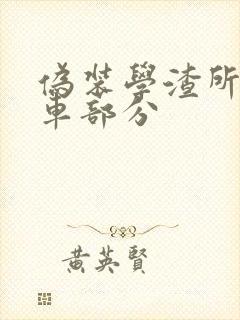 偽裝學渣所
車部分
黃英賢